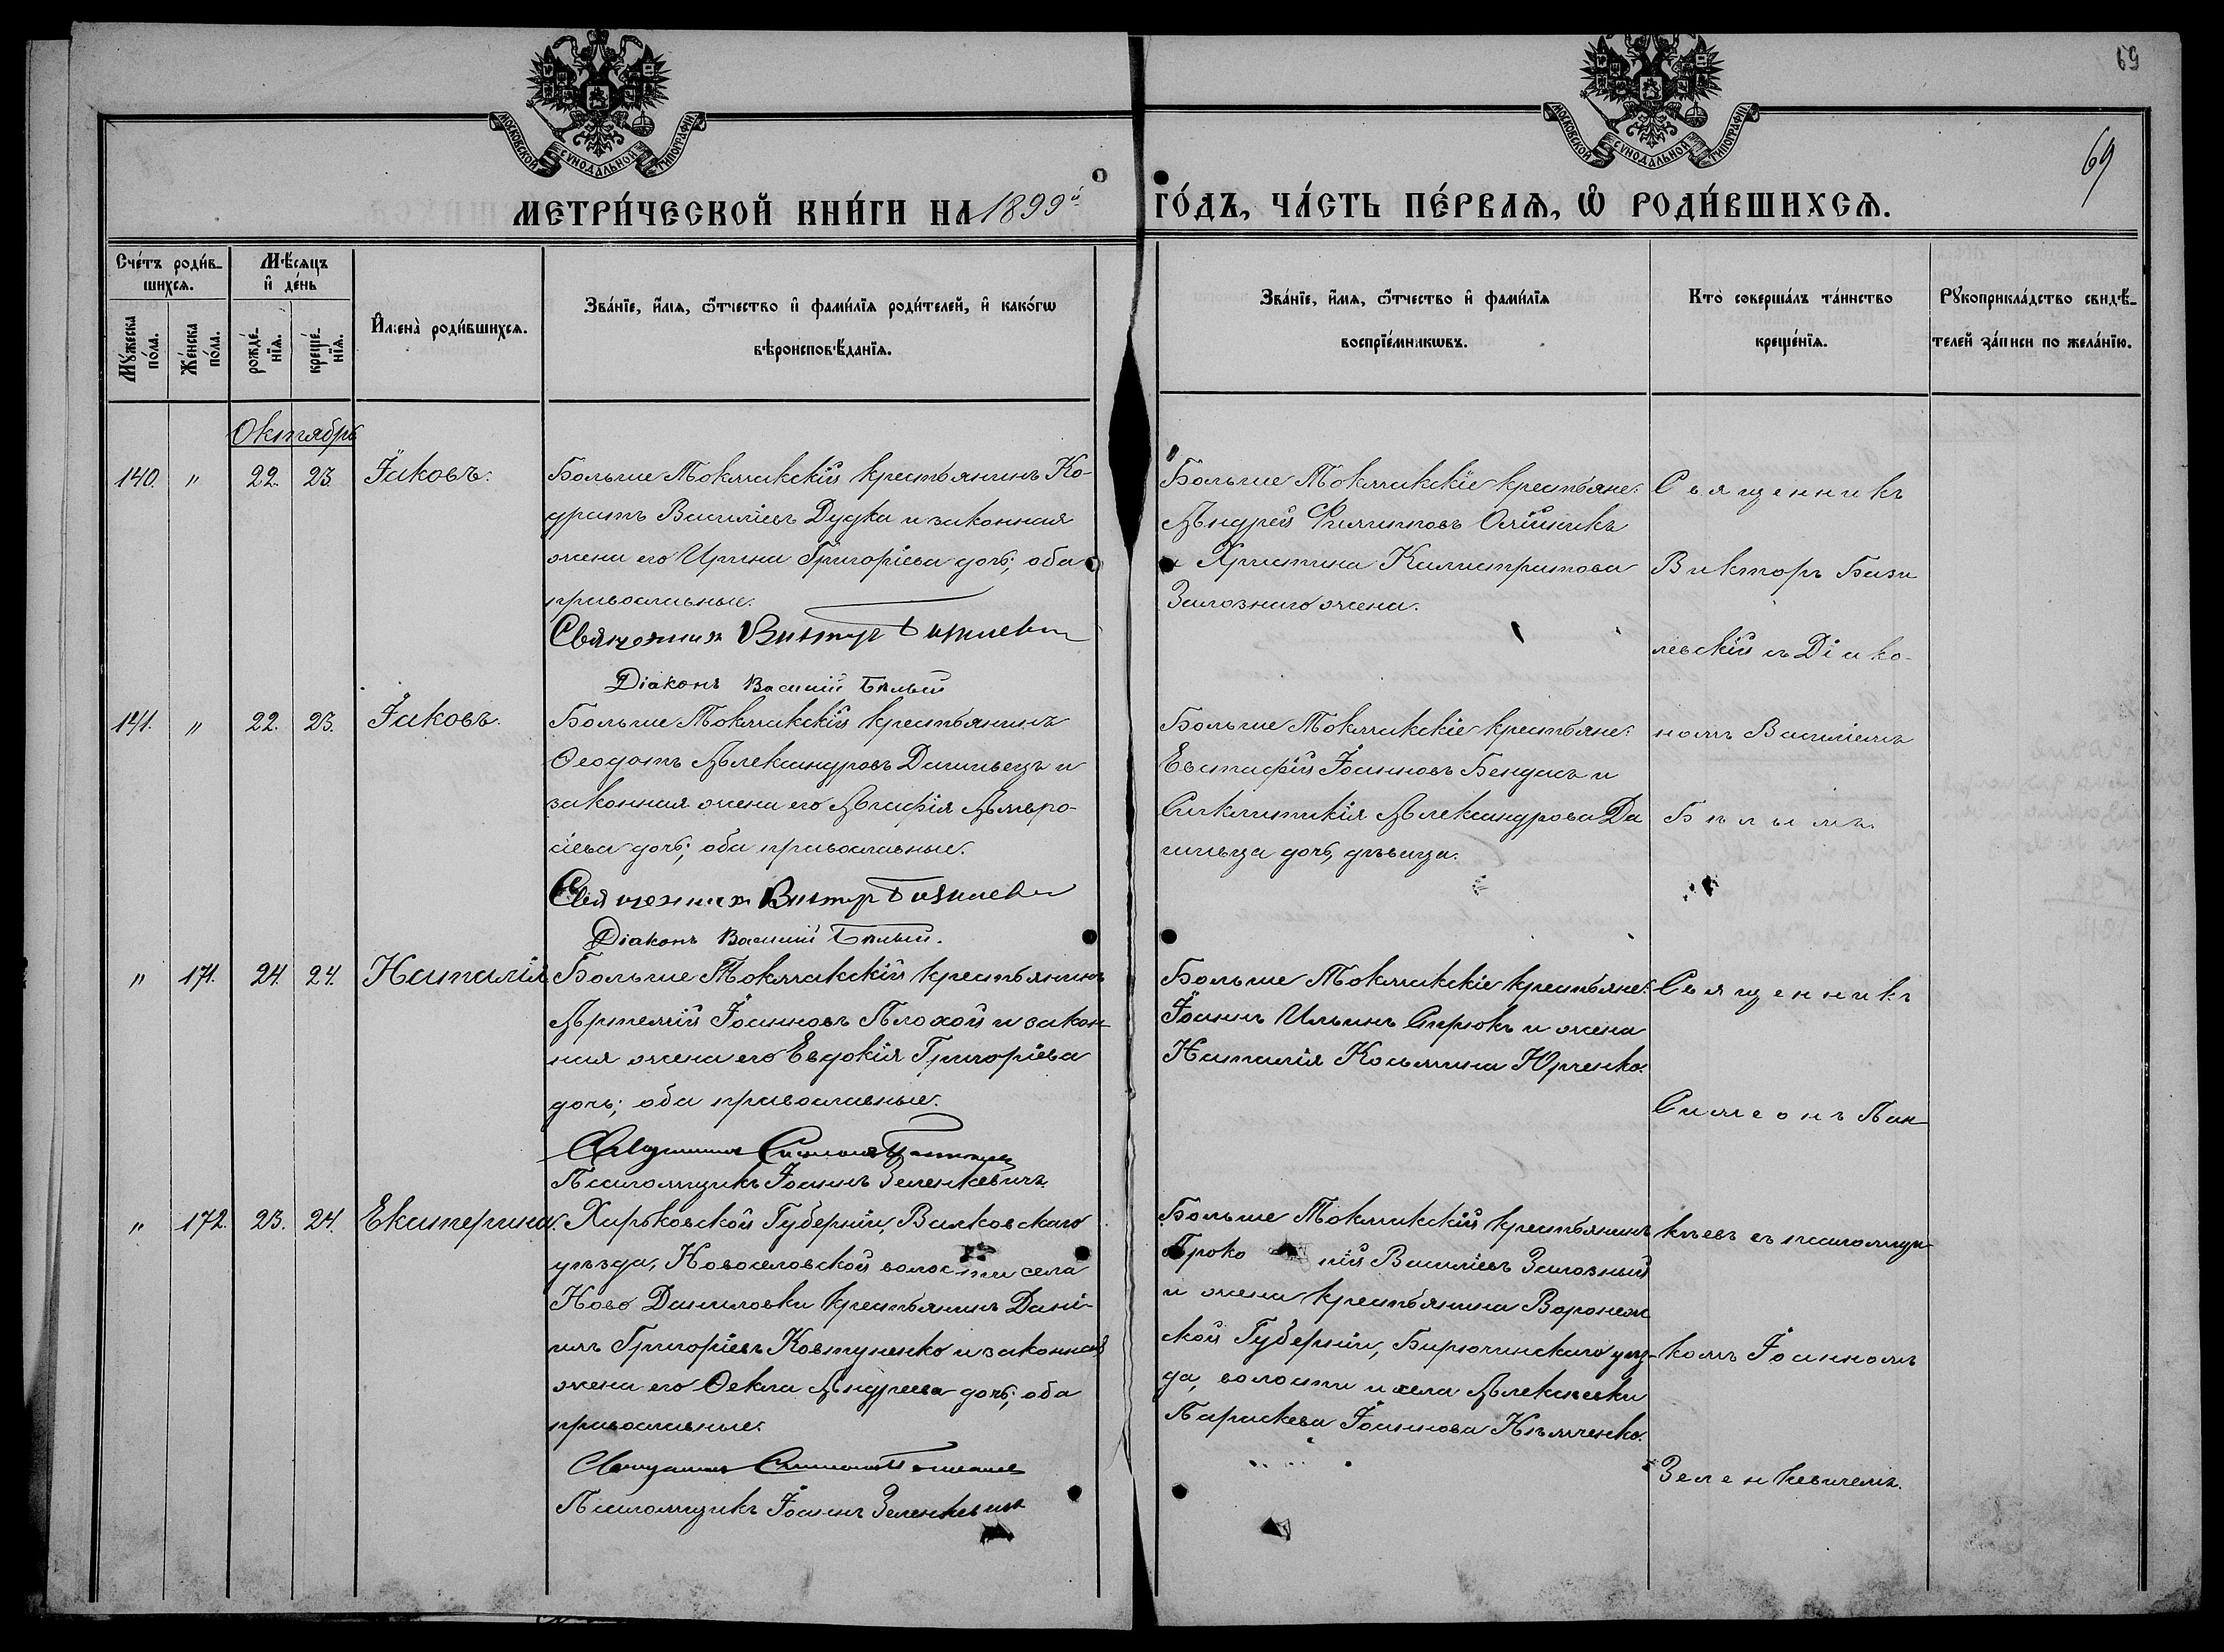 69
69
МОСКОВСКОЙ СУНОДАЛЬНОЙ ТИПОГРАФІИ
МОСКОВСКОЙ СУНОДАЛЬНОЙ ТИПОГРАФІИ
МЕТРИ́ЧЕСКОЙ КНИ́ГИ НА 1899й
ГО́ДЪ, ЧА́СТЬ ПЕ́РВАѦ, Ѡ҆ РОДИ́ВШИХСѦ.
Сче́тъ роди́в-
шихсѧ.
Мꙋ́жеска по́ла.
Же́нска по́ла.
Мѣ́сѧцъ
и҆ де́нь
рожде́-
нїѧ.
креще́-
нїѧ.
И҆мена̀ роди́вшихсѧ.
Зва́нїе, и҆́мѧ, ѻ҆́тчество и҆ фами́лїѧ роди́телей, и҆ како́гѡ
вѣроисповѣ́данїѧ.
Зва́нїе, и҆́мѧ, ѻ҆́тчество и҆ фами́лїѧ
воспрїе́мникѡвъ.
Кто̀ соверша́лъ та́инство
креще́нїѧ.
Рꙋкоприкла́дство свидѣ́-
телей за́писи по жела́нїю.
Октябрь
140. " 22. 23. Іаковъ.
Больше Токмакскій крестьянинъ Ко-
дратъ Василіевъ Дудка и законная
жена его Ирина Григоріева дочь; оба
православные.
Священникъ Викторъ Базилевскій
Діаконъ Василій Бѣлый
Больше Токмакскіе крестьяне:
Андрей Филипповъ Олійникъ
и Христина Калистратова
Залознаго жена.
Священникъ
Викторъ Бази
левскій съ Діако-
141. " 22. 23. Іаковъ.
Больше Токмакскій крестьянинъ
Ѳеодотъ Александровъ Данильецъ и
законная жена его Агафія Амвро-
сіева дочь; оба православные.
Священникъ Викторъ Базилевскій
Діаконъ Василій Бѣлый.
Больше Токмакскіе крестьяне:
Евстафій Іоанновъ Бендасъ и
Синклитикія Александрова Да
нильца дочь, дѣвица.
номъ Василіемъ
Бѣлымъ.
" 171. 24. 24. Наталія
Больше Токмакскій крестьянинъ
Артемій Іоанновъ Плохой и закон-
ная жена его Евдокія Григоріева
дочь; оба православные.
Священникъ Симеонъ
Псаломщикъ Іоаннъ Зеленкевичъ.
Больше Токмакскіе крестьяне:
Іоаннъ Ильинъ Сирюкъ и жена
Наталія Косьмина Юрченко.
Священникъ
Симеонъ Пан
" 172. 23. 24. Екатерина.
Харьковской Губерніи, Валковскаго
уѣзда, Новоселовской волости села
Ново Даниловки крестьянинъ Дані-
илъ Григоріевъ Ковтуненко и законная
жена его Ѳекла Андреева дочь; оба
православные.
Священникъ Симеонъ
Псаломщикъ Іоаннъ Зеленкевичъ
Больше Токмакскій крестьянинъ
Прокопій Василіевъ Залозный
и жена крестьянина Воронеж
ской Губерніи, Бирючинскаго уѣз-
да, волости и села Алексѣевки
Параскева Іоаннова Нѣмченко.
кѣевъ съ псаломщи
комъ Іоанномъ
Зеленкевичемъ.